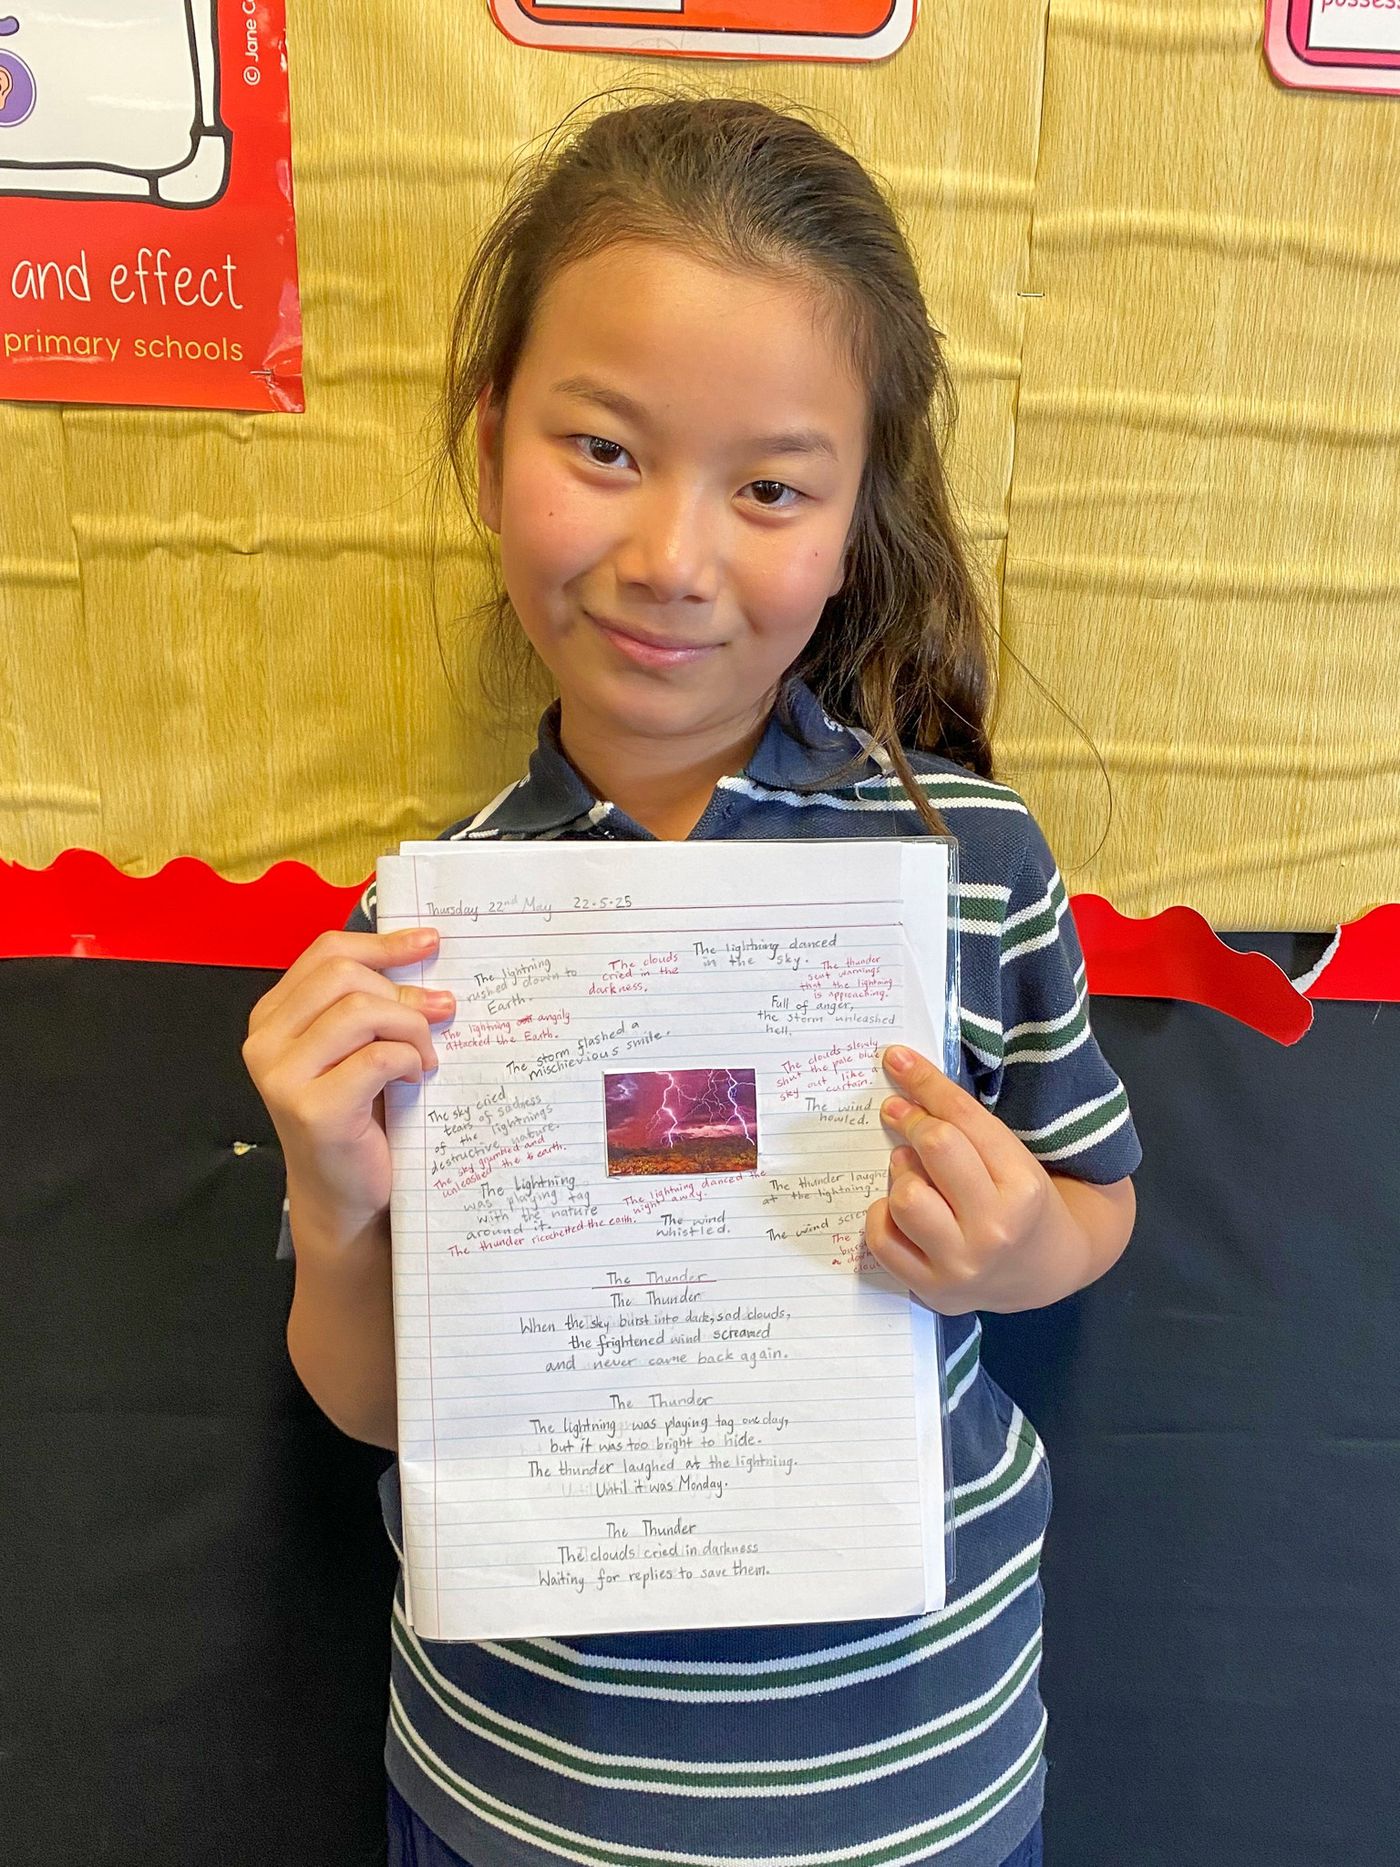 © Jane C
possess
and effect
primary schools
Thursday 22nd May 22.5.25
The lightning danced
in the sky.
The lightning
rushed down to
Earth.
The clouds
cried in the
darkness.
The thunder
sent warnings
that the lightning
is approaching.
Full of anger,
the storm unleashed
hell.
The lightning angrily
attacked the Earth.
The storm flashed a
mischievious smile.
The clouds slowly
shut the pale blue
sky out like a
curtain.
The wind
howled.
The sky cried
tears of sadness
of the lightnings
destructive nature.
The sky grumbled and
unleashed the earth.
The Lightning
was playing tag
with the nature
around it.
The lightning danced the
night away.
The thunder laughe
at the lightning.
The thunder ricochetted the earth.
The wind
whistled.
The wind scren
The s
burst
a dark
cloud
The Thunder
The Thunder
When the sky burst into dark, sad clouds,
the frightened wind screamed
and never came back again.
The Thunder
The lightning was playing tag one day,
but it was too bright to hide.
The thunder laughed at the lightning.
Until it was Monday.
The Thunder
The clouds cried in darkness
Waiting for replies to save them.